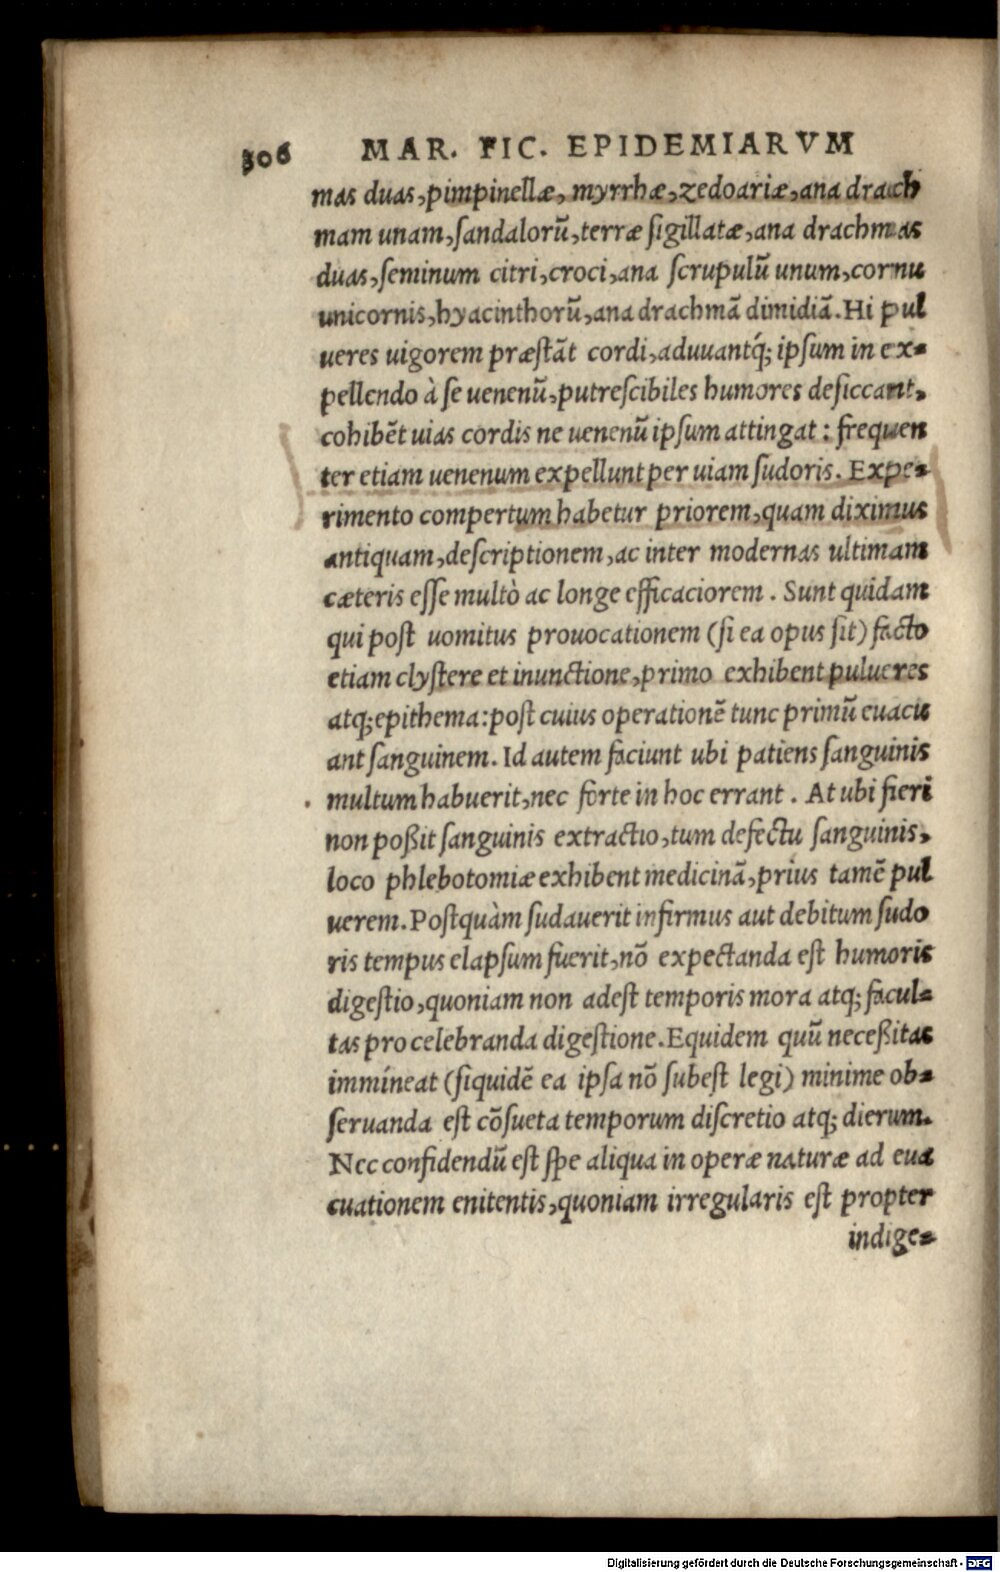 306 MAR. FIC. EPIDEMIARVM
mas duas, pimpinellæ, myrrhæ, zedoariæ, ana drach
mam unam, ſandalorū, terræ ſigillatæ, ana drachmas
duas, ſeminum citri, croci, ana ſcrupulū unum, cornu
unicornis, hyacinthorū, ana drachmā dimidiā. Hi pul
ueres uigorem præſtāt cordi, aduuantq́; ipſum in ex-
pellendo à ſe uenenū, putreſcibiles humores deſiccant,
cohibēt uias cordis ne uenenū ipſum attingat: frequen
ter etiam uenenum expellunt per uiam ſudoris. Expe-
rimento compertum habetur priorem, quam diximus
antiquam, deſcriptionem, ac inter modernas ultimam
cæteris eſſe multò ac longe efficaciorem. Sunt quidam
qui poſt uomitus prouocationem (ſi ea opus ſit) facto
etiam clyſtere et inunctione, primo exhibent pulueres
atq; epithema: poſt cuius operationē tunc primū euacu
ant ſanguinem. Id autem faciunt ubi patiens ſanguinis
multum habuerit, nec forte in hoc errant. At ubi fieri
non poßit ſanguinis extractio, tum defectu ſanguinis,
loco phlebotomiæ exhibent medicinā, prius tamē pul
uerem. Poſtquàm ſudauerit infirmus aut debitum ſudo
ris tempus elapſum fuerit, nō expectanda eſt humoris
digeſtio, quoniam non adeſt temporis mora atq; facul-
tas pro celebranda digeſtione. Equidem quū neceßitas
immineat (ſiquidē ea ipſa nō ſubeſt legi) minime ob-
ſeruanda eſt cōſueta temporum diſcretio atq; dierum.
Nec confidendū eſt ſpe aliqua in operæ naturæ ad eua
cuationem enitentis, quoniam irregularis eſt propter
indige-
Digitalisierung gefördert durch die Deutsche Forschungsgemeinschaft - DFG